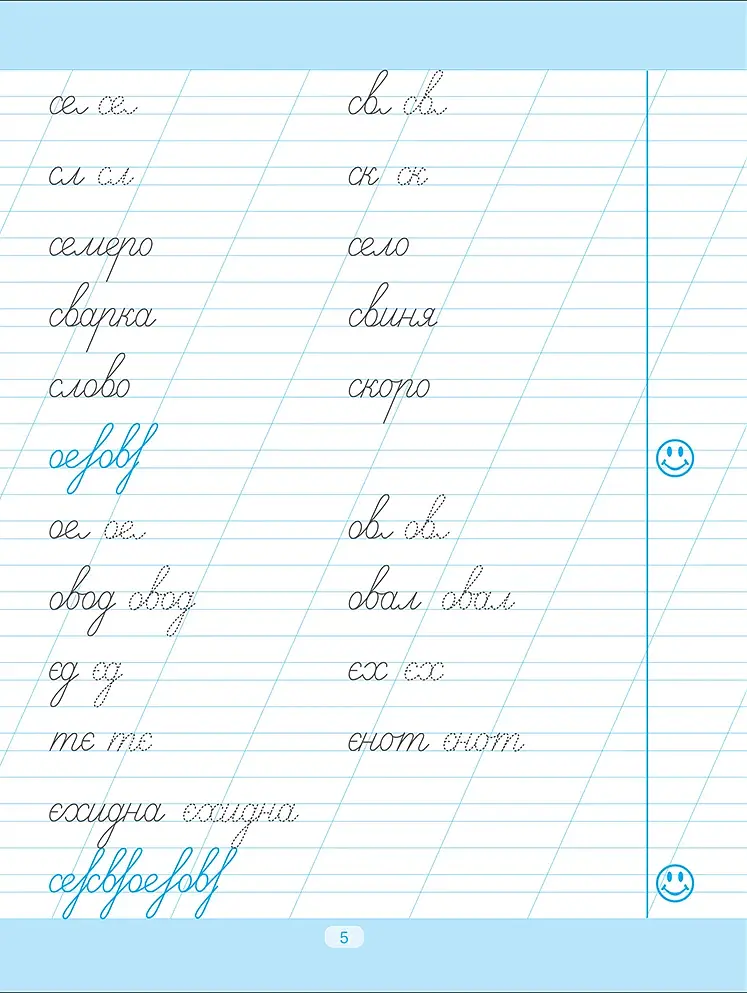 се се св св
сл сл ск ск
семеро село
сварка свиня
слово скоро
ое ов
ое ое ов ов
овод овод овал овал
єд єд єх єх
тє тє єнот єнот
єхидна єхидна
се св ое ов
5